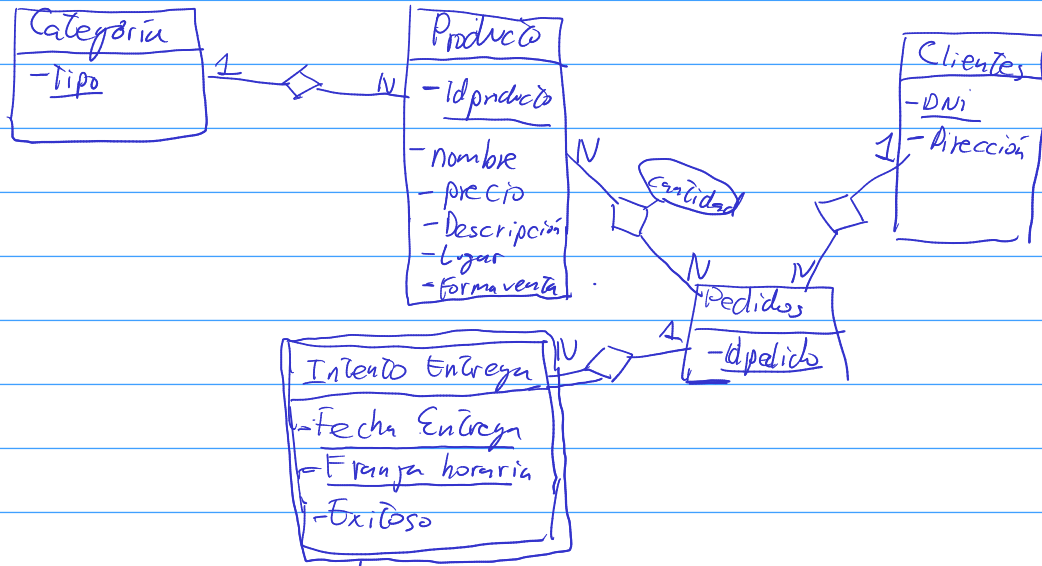 Categoría
- Tipo
1
N
Producto
- Idproducto
- nombre
- precio
- Descripción
- Lugar
- Formaventa
N
cantidad
N
Clientes
- DNi
- Dirección
1
N
Pedidos
- Idpedido
1
N
Intento Entrega
- Fecha Entrega
- Franja horaria
- Exitoso